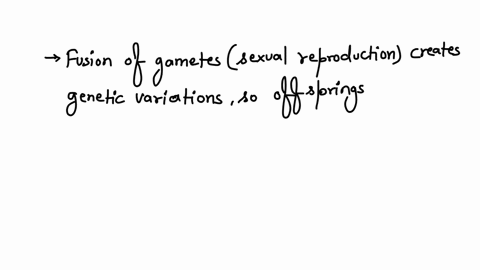 → Fusion of gametes (sexual reproduction) creates
genetic variations, so off springs